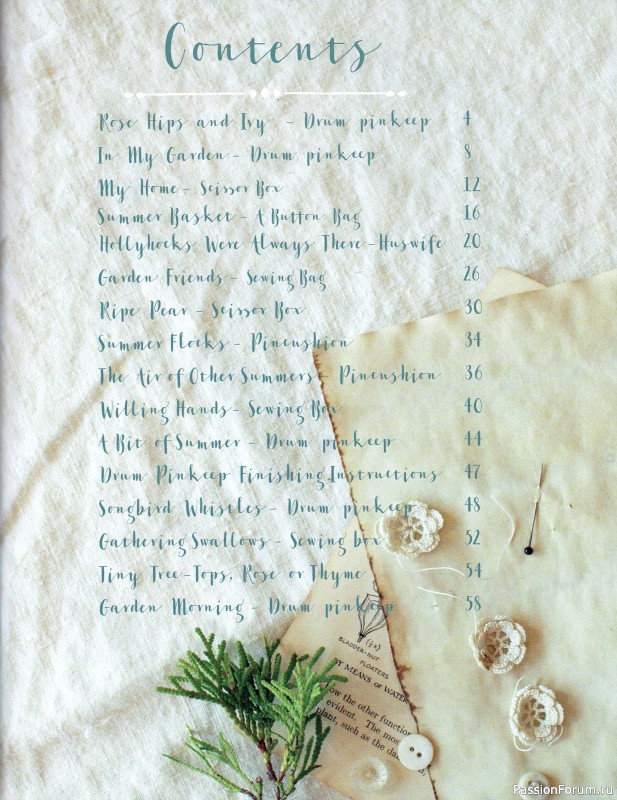 Contents
Rose Hips and Ivy - Drum pinkeep 4
In My Garden - Drum pinkeep 8
My Home - Scissor Box 12
Summer Basket - A Button Bag 16
Hollyhocks Were Always There - Huswife 20
Garden Friends - Sewing Bag 26
Ripe Pear - Scissor Box 30
Summer Flocks - Pincushion 34
The Air of Other Summers - Pincushion 36
Willing Hands - Sewing Box 40
A Bit of Summer - Drum pinkeep 44
Drum Pinkeep Finishing Instructions 47
Songbird Whistles - Drum pinkeep 48
Gathering Swallows - Sewing box 52
Tiny Tree-Tops, Rose or Thyme 54
Garden Morning - Drum pinkeep 58
BLADDER-NUT
FLOATERS
BY MEANS OF WATER
ow the other function
evident. The mos
plant, such as the da
PassionForum.ru